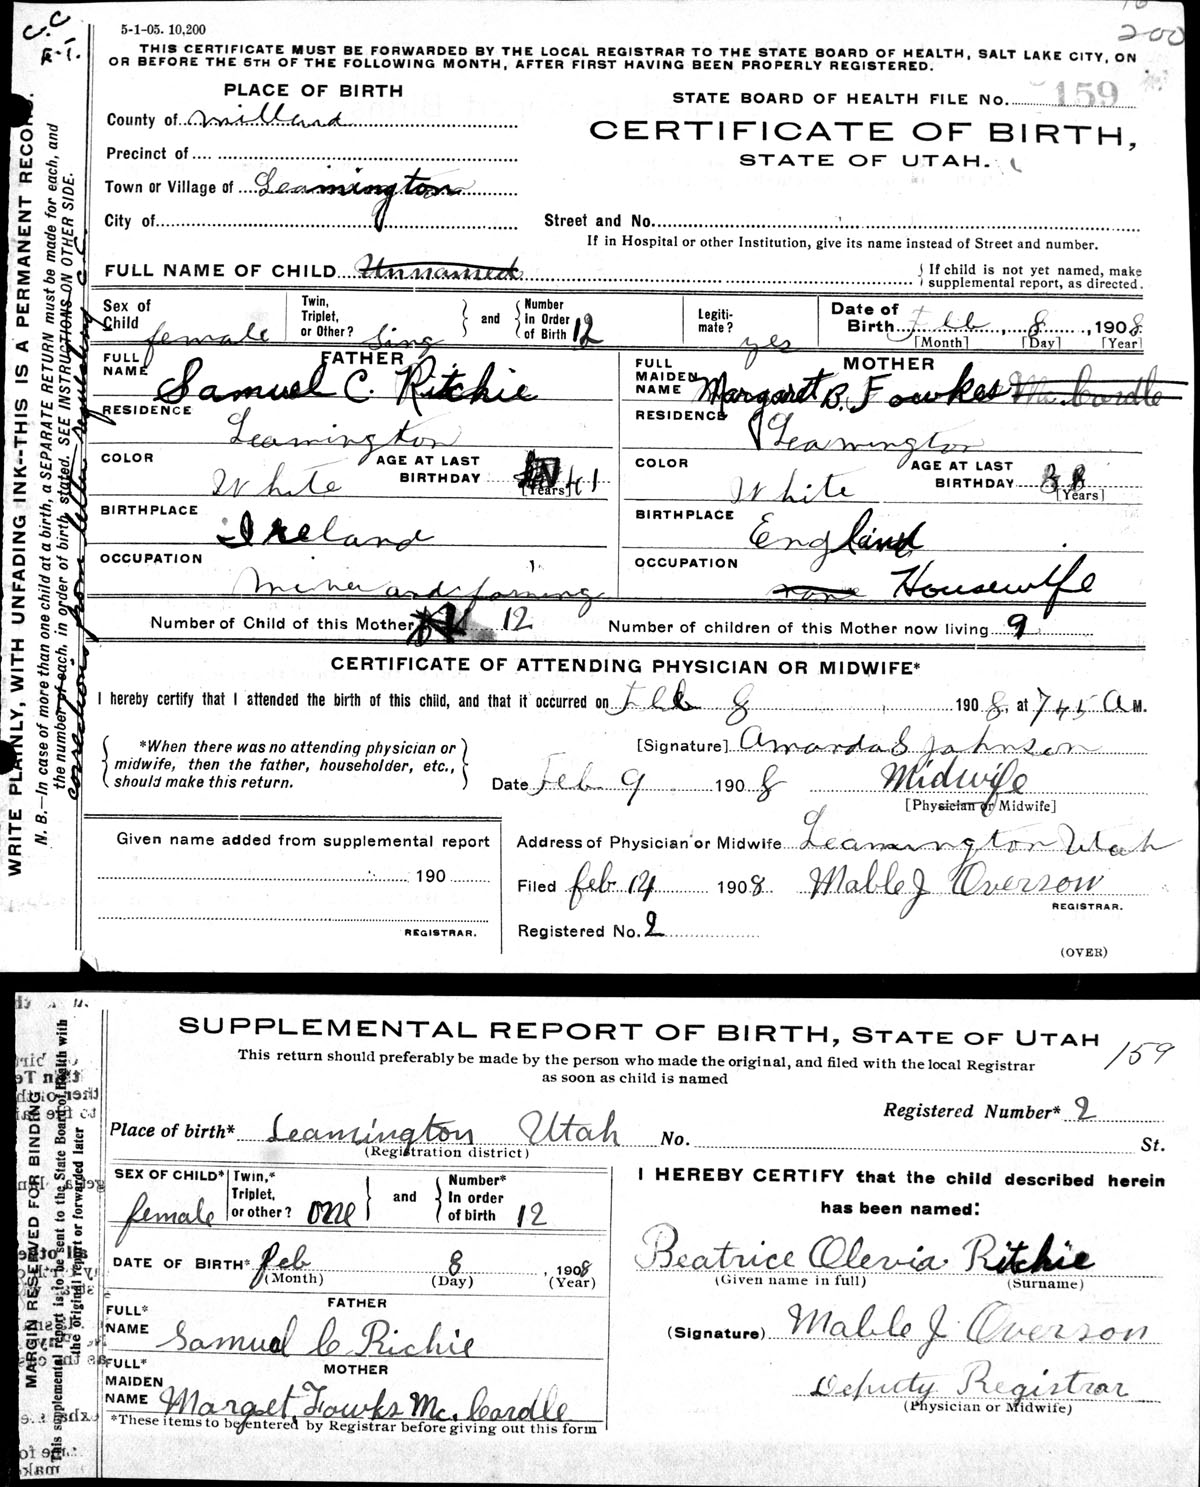 C.C
5-1-05. 10,200
200
THIS CERTIFICATE MUST BE FORWARDED BY THE LOCAL REGISTRAR TO THE STATE BOARD OF HEALTH, SALT LAKE CITY, ON
OR BEFORE THE 5TH OF THE FOLLOWING MONTH, AFTER FIRST HAVING BEEN PROPERLY REGISTERED.
PLACE OF BIRTH
STATE BOARD OF HEALTH FILE No. 159
County of Millard
CERTIFICATE OF BIRTH,
Precinct of
STATE OF UTAH.
Town or Village of Leamington
City of
Street and No.
If in Hospital or other Institution, give its name instead of Street and number.
FULL NAME OF CHILD Unnamed
If child is not yet named, make
supplemental report, as directed.
Sex of Child female
Twin, Triplet, or Other? Sing
and
Number In Order of Birth 12
Legitimate? yes
Date of Birth Feb 8, 1908
[Month] [Day] [Year]
FATHER
FULL NAME Samuel C. Ritchie
RESIDENCE Leamington
COLOR White
AGE AT LAST BIRTHDAY 41
[Years]
BIRTHPLACE Ireland
OCCUPATION Miner and farming
MOTHER
FULL MAIDEN NAME Margaret B. Fowkes Mc. Cardle
RESIDENCE Leamington
COLOR White
AGE AT LAST BIRTHDAY 38
[Years]
BIRTHPLACE England
OCCUPATION none Housewife
Number of Child of this Mother 12
Number of children of this Mother now living 9
CERTIFICATE OF ATTENDING PHYSICIAN OR MIDWIFE*
I hereby certify that I attended the birth of this child, and that it occurred on Feb 8 1908, at 745 A M.
*When there was no attending physician or
midwife, then the father, householder, etc.,
should make this return.
[Signature] Amanda S Johnson
Date Feb 9 1908 Midwife
[Physician or Midwife]
Given name added from supplemental report
190
REGISTRAR.
Address of Physician or Midwife Leamington Utah
Filed Feb 14 1908 Mable J Overson
REGISTRAR.
Registered No. 2
(OVER)
WRITE PLAINLY, WITH UNFADING INK--THIS IS A PERMANENT RECORD.
N. B.—In case of more than one child at a birth, a SEPARATE RETURN must be made for each, and
the number of each, in order of birth, stated. SEE INSTRUCTIONS ON OTHER SIDE.
corrections from letter
SUPPLEMENTAL REPORT OF BIRTH, STATE OF UTAH
159
This return should preferably be made by the person who made the original, and filed with the local Registrar
as soon as child is named
Registered Number* 2
Place of birth* Leamington Utah No. St.
(Registration district)
SEX OF CHILD* female
Twin,* Triplet, or other? one
and
Number* In order of birth 12
DATE OF BIRTH* Feb 8, 1908
(Month) (Day) (Year)
FATHER
FULL* NAME Samuel C Richie
MOTHER
FULL* MAIDEN NAME Marget Fowks Mc. Cardle
*These items to be entered by Registrar before giving out this form
I HEREBY CERTIFY that the child described herein
has been named:
Beatrice Olevia Ritchie
(Given name in full) (Surname)
(Signature) Mable J Overson
Deputy Registrar
(Physician or Midwife)
MARGIN RESERVED FOR BINDING
This supplemental report is to be sent to the State Board of Health with
the original report or forwarded later